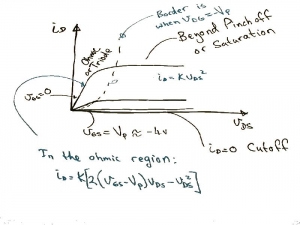 Border is
when υDG = -Vp
iD
Ohmic
or Triode
Beyond Pinchoff
or Saturation
iD = K υDS²
υGS = 0
υGS = Vp ≈ -4v
υDS
iD = 0 Cutoff
In the ohmic region:
iD = K[2(υGS - Vp)υDS - υDS²]